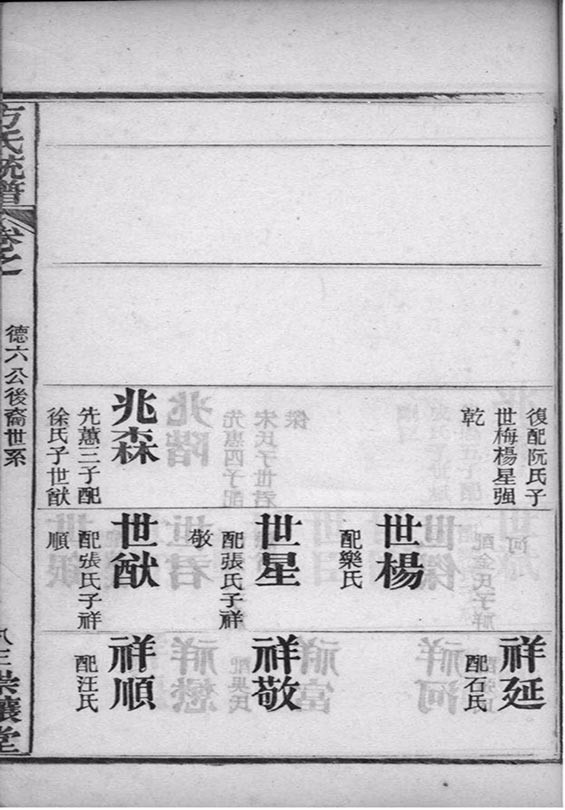 復配阮氏子
世梅楊星强
乾
兆森
先蕙三子配
徐氏子世猷
世楊
配樂氏
世星
配張氏子祥
敬
世猷
配張氏子祥
順
祥延
配石氏
祥敬
祥順
配汪氏
方氏統譜
卷之
德六公後裔世系
堂